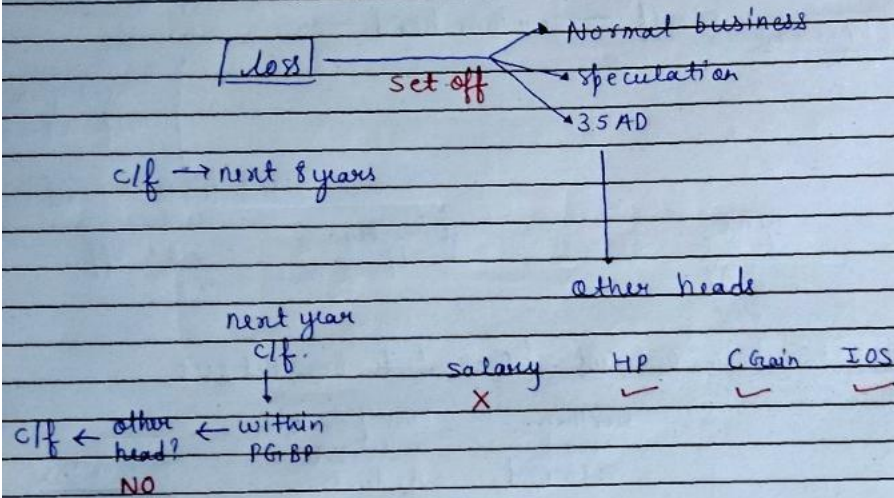 Normal business
loss
set off
speculation
35 AD
c/f → next 8 years
other heads
next year
c/f.
salary HP C Gain IOS
X ✓ ✓ ✓
c/f ← other head? ← within PGBP
NO